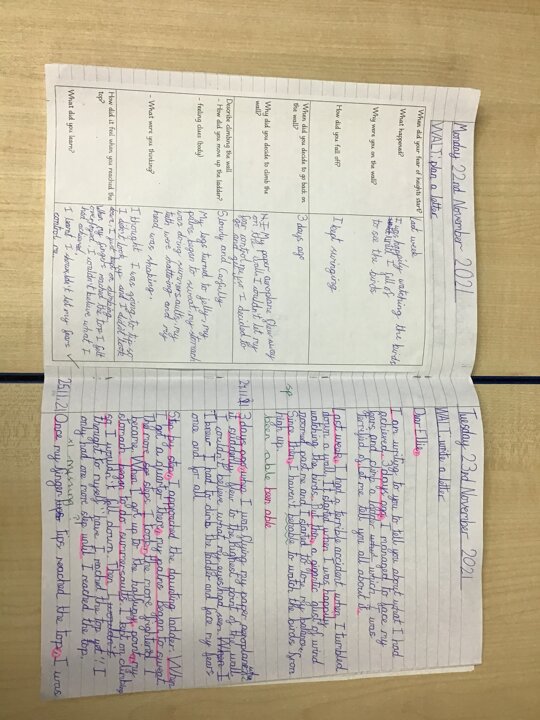 Monday 22nd November 2021
WALT plan a letter
When did your fear of heights start?
last week
What happened?
I was happily watching the birds
until I fell of
Why were you on the wall?
to see the birds
How did you fall off?
I kept swinging
When did you decide to go back on the wall?
3 days ago
Why did you decide to climb the wall?
N.I My paper aeroplane flew away
on the wall. I wouldn't let my
fear control me so I decided to
Describe climbing the wall
- How did you move up the ladder?
Slowly and carfully
- feeling clues (body)
My legs turned to jelly, my
palms began to sweat, my stomach
was doing summersaults, my
teeth were chattering and my
head was shaking.
- What were you thinking?
I thought I was going to trip so
I didn't look up and I didn't look
down. I just kept on climbing
How did it feel when you reached the top?
When my fingers reached the top I felt
overjoyed. I couldn't believe what I
had achieved.
What did you learn?
I learnt I shouldn't let my fears
control me.
Tuesday 23rd November 2021
WALT write a letter
Dear Ellis,
I am writing to you to tell you about what I had
achieved. 3 days ago, I managed to face my
fears and climb a ladder which it was
terrifying. Let me tell you all about it.
Last week, I had a terrible accident when I tumbled
down a wall. It started when I was happily
watching the birds. But then a gigantic gust of wind
zoomed past me and I started to lose my balance.
Since then, I haven't beable to watch the birds from
high up.
sp
been able been able
24.11.21
3 days ago, when I was flying my paper aeroplane,
it suddenly flew to the highest part of the wall.
I couldn't believe what my eyes had seen. When I
knew I had to climb the ladder and face my fears
once and for all.
Step by step, I approached the daunting ladder. When
I got a quarter there, my palms began to sweat.
The more steps I took, the more frightened I
became. When I got up to the halfway point, my
stomach began to do summersaults. I kept on climbing
so I wouldn't fall down. Then I wondered
thought to myself "have I reached the top yet?" I
only had one more step until I reached the top.
25.11.21
Once my finger tips reached the top, I was